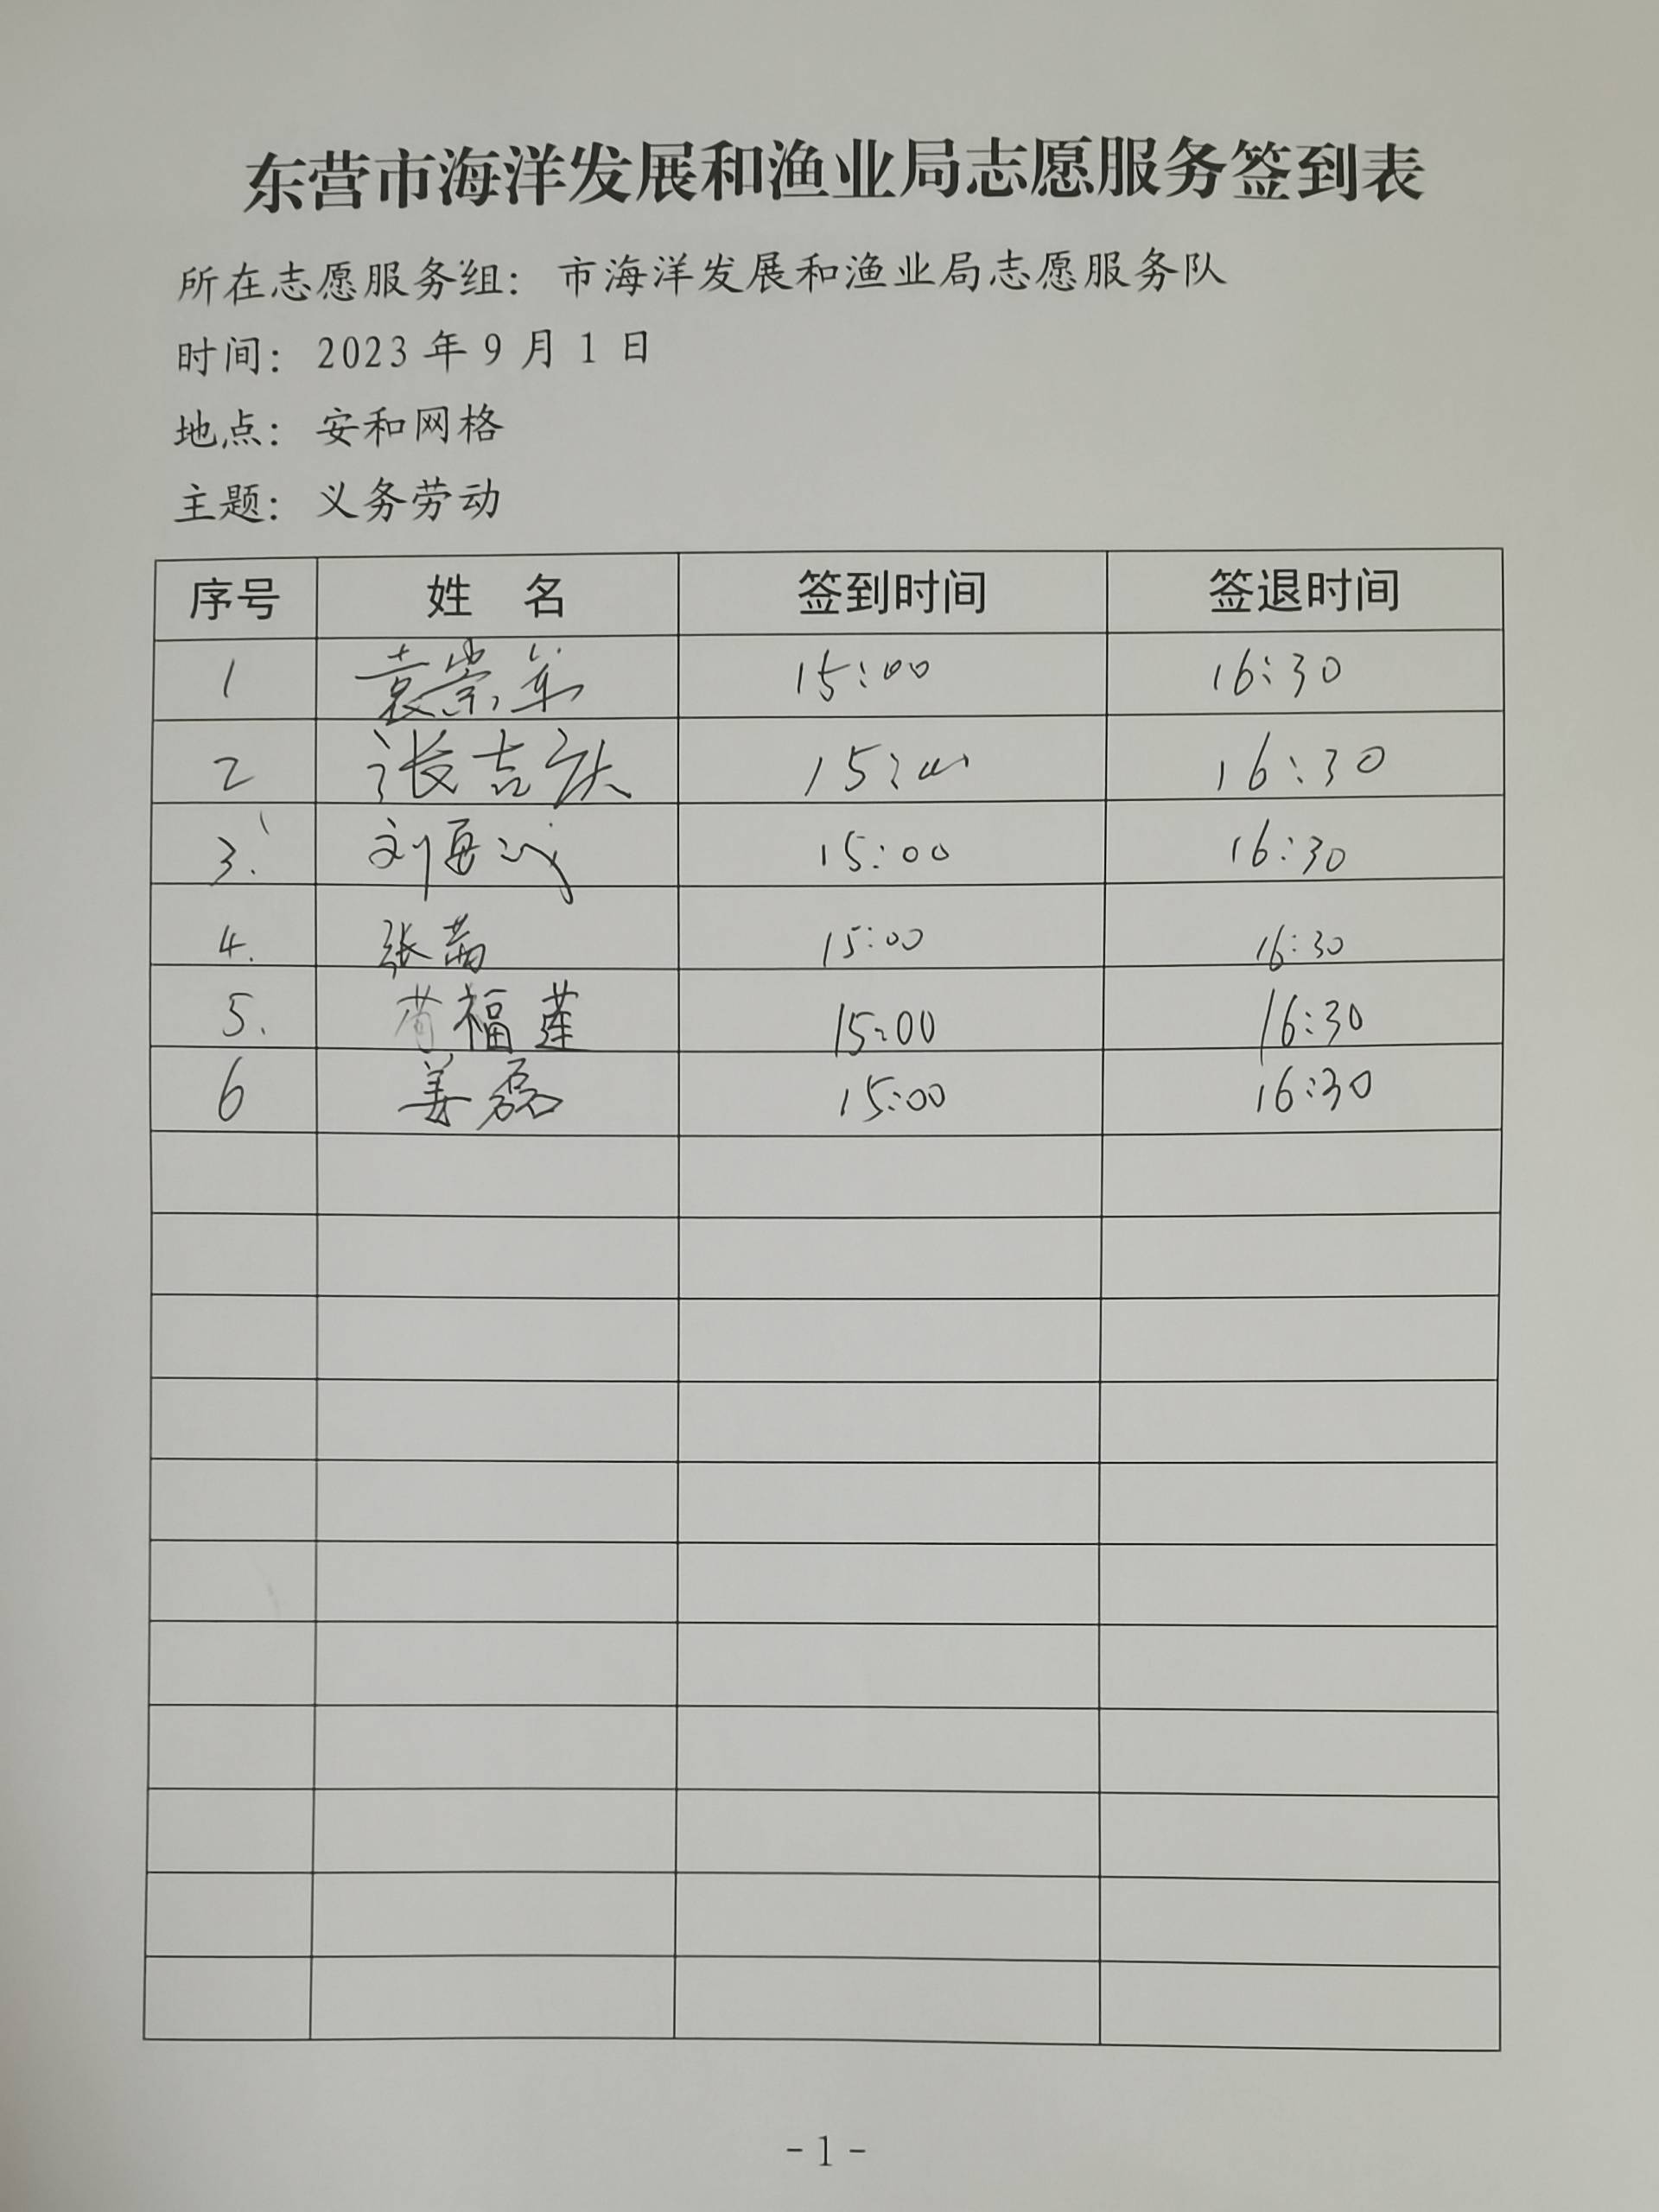 东营市海洋发展和渔业局志愿服务签到表
所在志愿服务组：市海洋发展和渔业局志愿服务队
时间：2023年9月1日
地点：安和网格
主题：义务劳动
序号 姓 名 签到时间 签退时间
1 袁崇军 15:00 16:30
2 张吉庆 15:00 16:30
3. 刘 15:00 16:30
4. 张茜 15:00 16:30
5. 福莲 15:00 16:30
6 姜磊 15:00 16:30
-1-